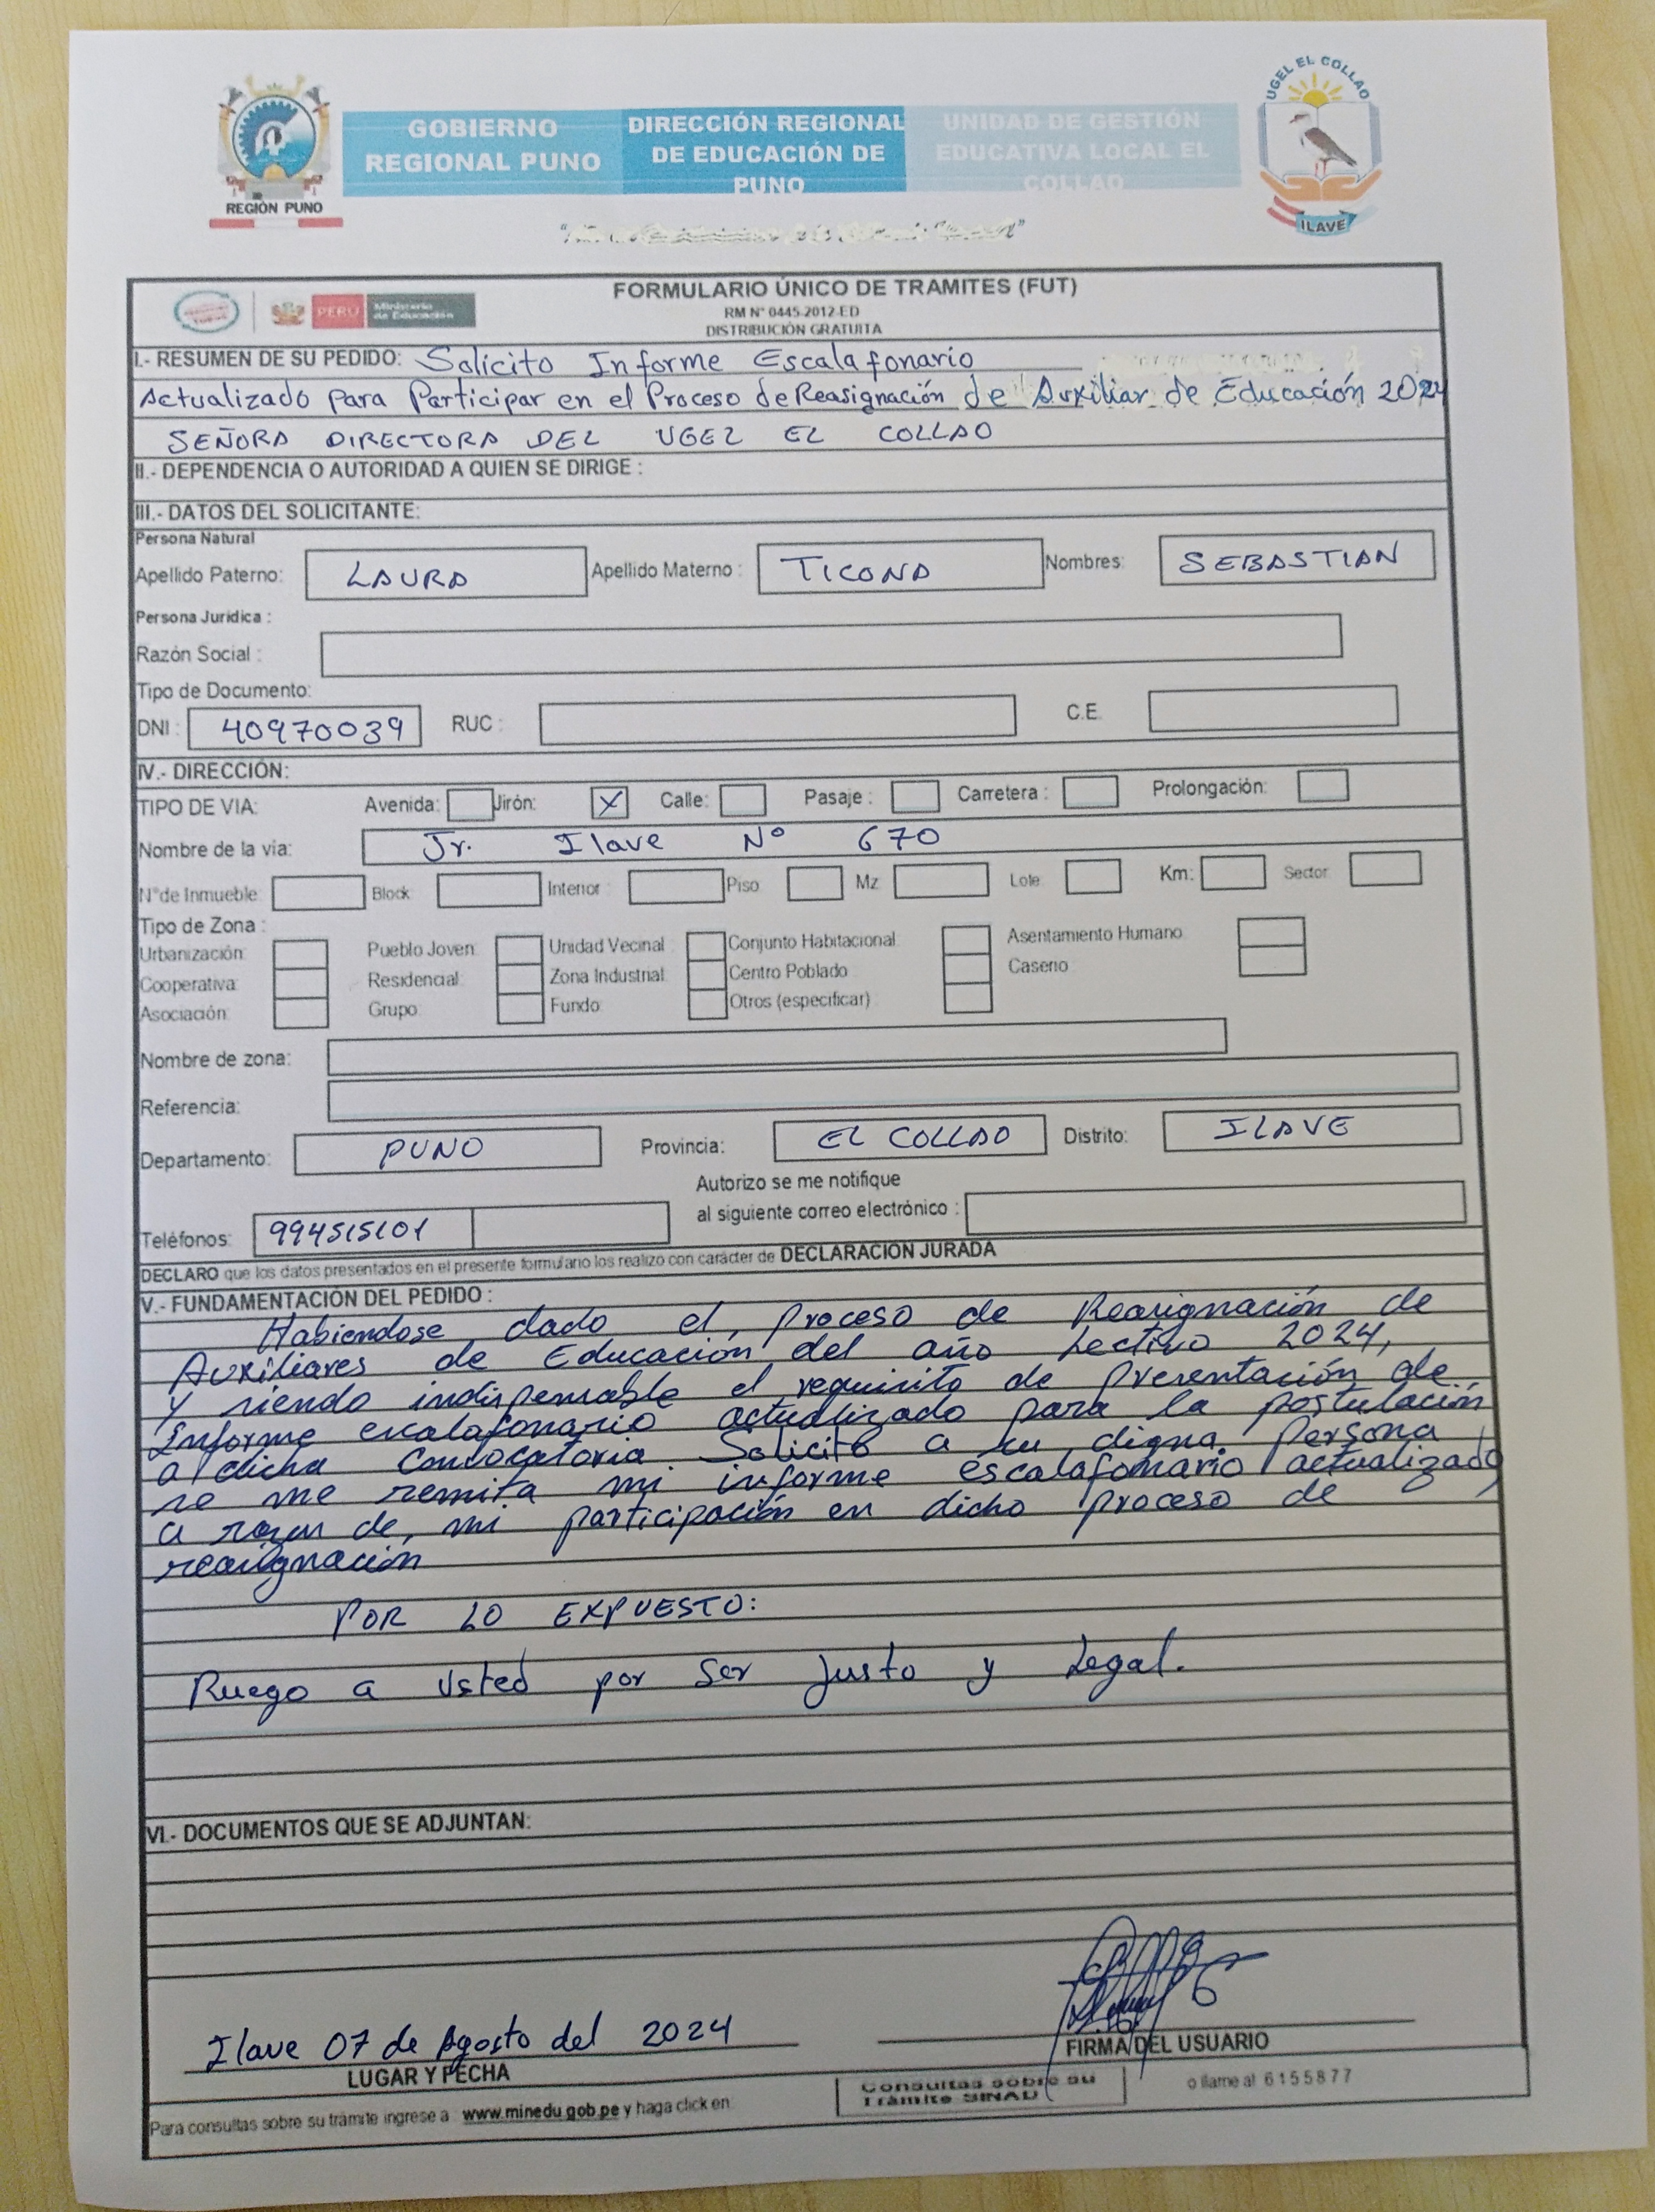 UGEL EL COLLAO
ILAVE
REGIÓN PUNO
GOBIERNO REGIONAL PUNO
DIRECCIÓN REGIONAL DE EDUCACIÓN DE PUNO
UNIDAD DE GESTIÓN EDUCATIVA LOCAL EL COLLAO
PERÚ Ministerio de Educación
FORMULARIO ÚNICO DE TRAMITES (FUT)
RM N° 0445-2012-ED
DISTRIBUCIÓN GRATUITA
I.- RESUMEN DE SU PEDIDO: Solicito Informe Escalafonario
Actualizado para Participar en el Proceso de Reasignación de Auxiliar de Educación 2024
SEÑORA DIRECTORA DEL UGEL EL COLLAO
II.- DEPENDENCIA O AUTORIDAD A QUIEN SE DIRIGE :
III.- DATOS DEL SOLICITANTE:
Persona Natural
Apellido Paterno: LAURA Apellido Materno : TICONA Nombres: SEBASTIAN
Persona Jurídica :
Razón Social :
Tipo de Documento:
DNI : 40970039 RUC : C.E.
IV.- DIRECCIÓN:
TIPO DE VIA: Avenida: Jirón: X Calle: Pasaje : Carretera : Prolongación:
Nombre de la via: Jr. Ilave N° 670
N°de Inmueble: Block: Interior : Piso Mz Lote: Km: Sector
Tipo de Zona :
Urbanización: Pueblo Joven: Unidad Vecinal : Conjunto Habitacional: Asentamiento Humano:
Cooperativa: Residencial: Zona Industrial: Centro Poblado Caserio
Asociación: Grupo: Fundo: Otros (especificar)
Nombre de zona:
Referencia:
Departamento: PUNO Provincia: EL COLLAO Distrito: ILAVE
Autorizo se me notifique
Teléfonos: 994515101 al siguiente correo electrónico :
DECLARO que los datos presentados en el presente formulario los realizo con carácter de DECLARACION JURADA
V.- FUNDAMENTACIÓN DEL PEDIDO :
Habiendose dado el proceso de Reasignación de
Auxiliares de Educación del año Lectivo 2024,
y siendo indispensable el requisito de presentación de
Informe escalafonario actualizado para la postulación
a dicha Convocatoria. Solicito a su digna Persona
se me remita mi informe escalafonario actualizado
a razon de mi participación en dicho proceso de
reasignación
POR LO EXPUESTO:
Ruego a Usted por ser Justo y Legal.
VI.- DOCUMENTOS QUE SE ADJUNTAN:
Ilave 07 de Agosto del 2024
LUGAR Y FECHA
FIRMA DEL USUARIO
Para consultas sobre su trámite ingrese a : www.minedu.gob.pe y haga click en: Consultas sobre su Trámite SINAD o llame al 6155877